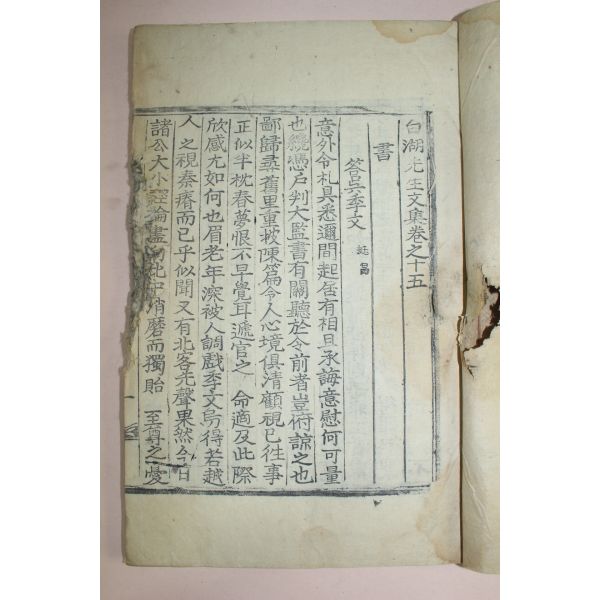 白湖先生文集卷之十五
書
答吳季文 延昌
意外令札具悉邇間起居有相且承誨意慰何可量
也纔憑戶判大監書有關聽於令前者豈俯諒之也
鄙歸尋舊里重披陳篇令人心境俱清顧視已往事
正似半枕春夢恨不早覺耳遞官之 命適及此際
欣感尤如何也眉老年深被人調戲季文烏得若越
人之視秦瘠而已乎似聞又有北客先聲果然今日
諸公大小經論盡向此中消磨而獨貽 至尊之憂